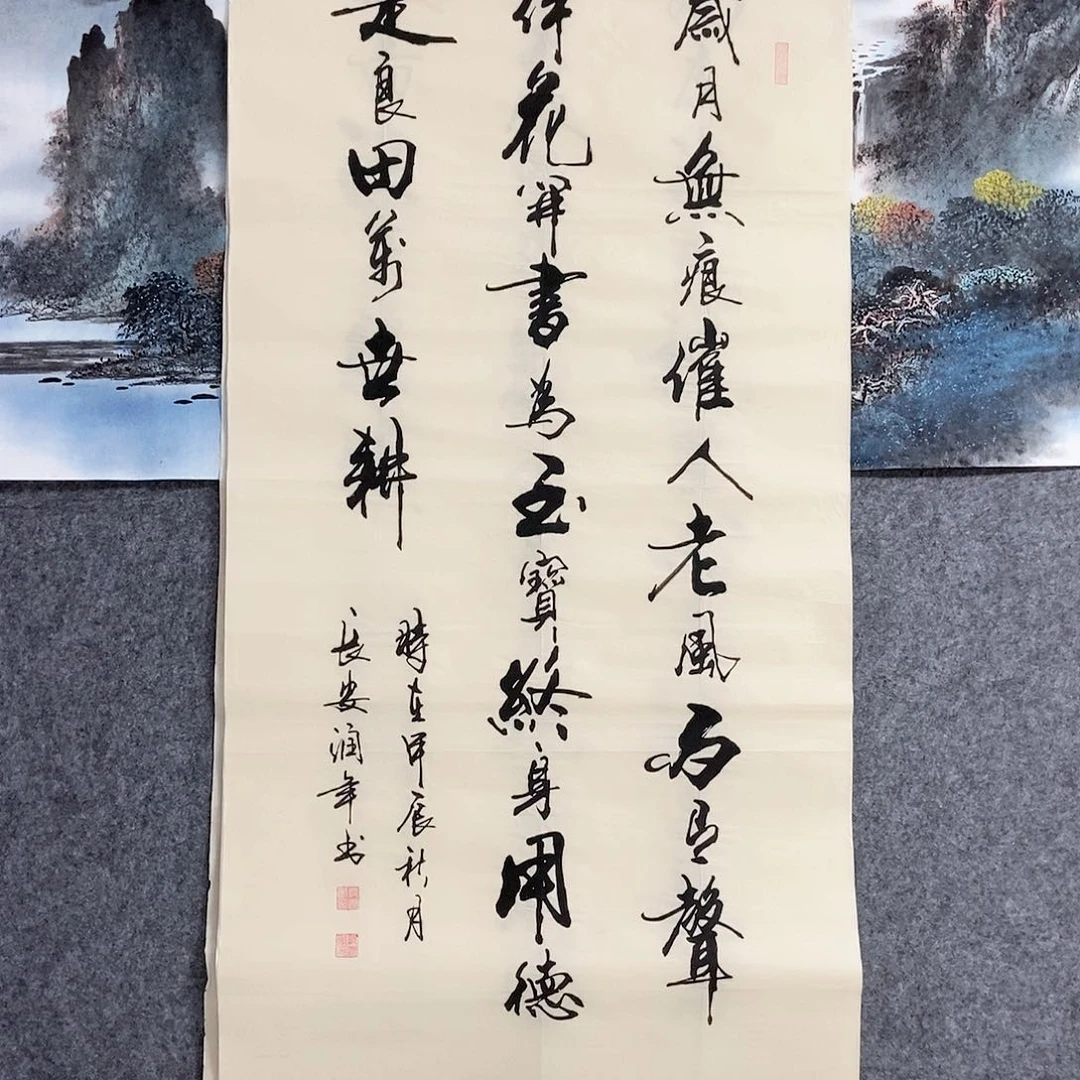 歲月無痕催人老風雨有聲
伴花開書為至寶終身用德
是良田萬世耕
時在甲辰秋月
長安潤年书